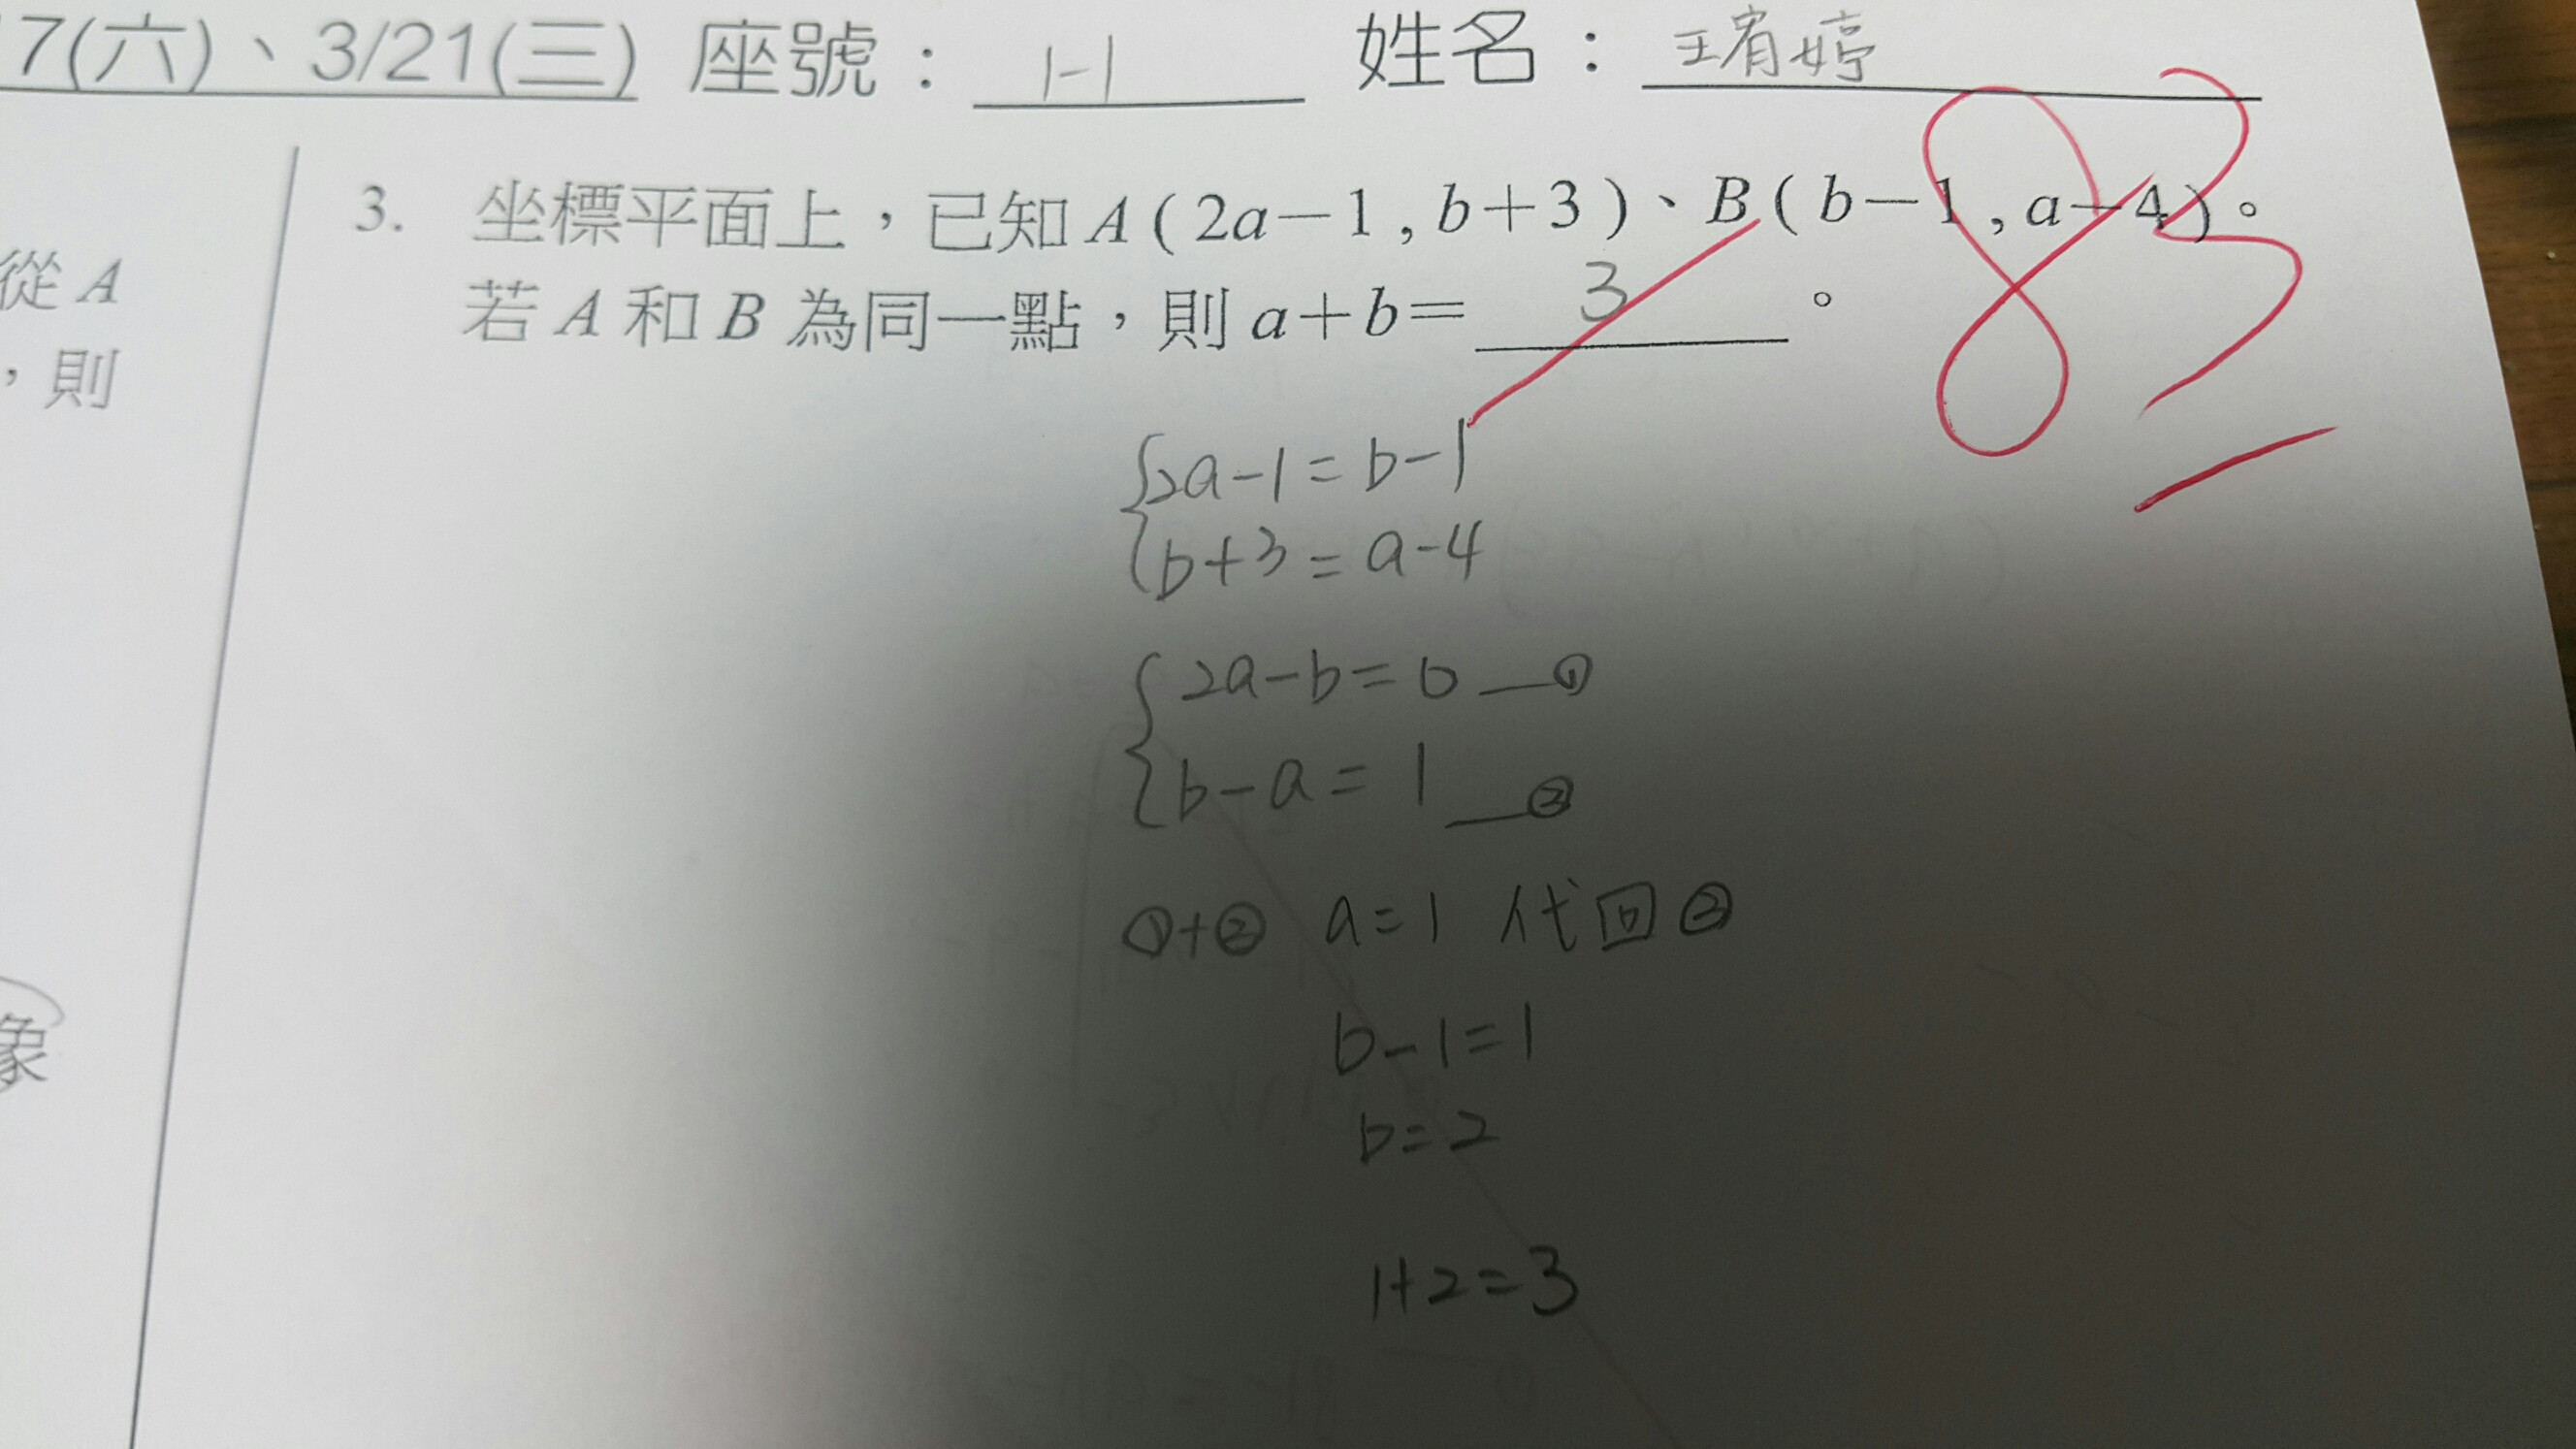 7(六)、3/21(三) 座號： 1-1 姓名： 王宥婷
83
從A
，則
象
3. 坐標平面上，已知A(2a－1,b＋3)、B(b－1,a－4)。
若A和B為同一點，則a＋b＝ 3 。
2a-1=b-1
b+3=a-4
2a-b=0 —①
b-a=1 —②
①+② a=1 代回②
b-1=1
b=2
1+2=3